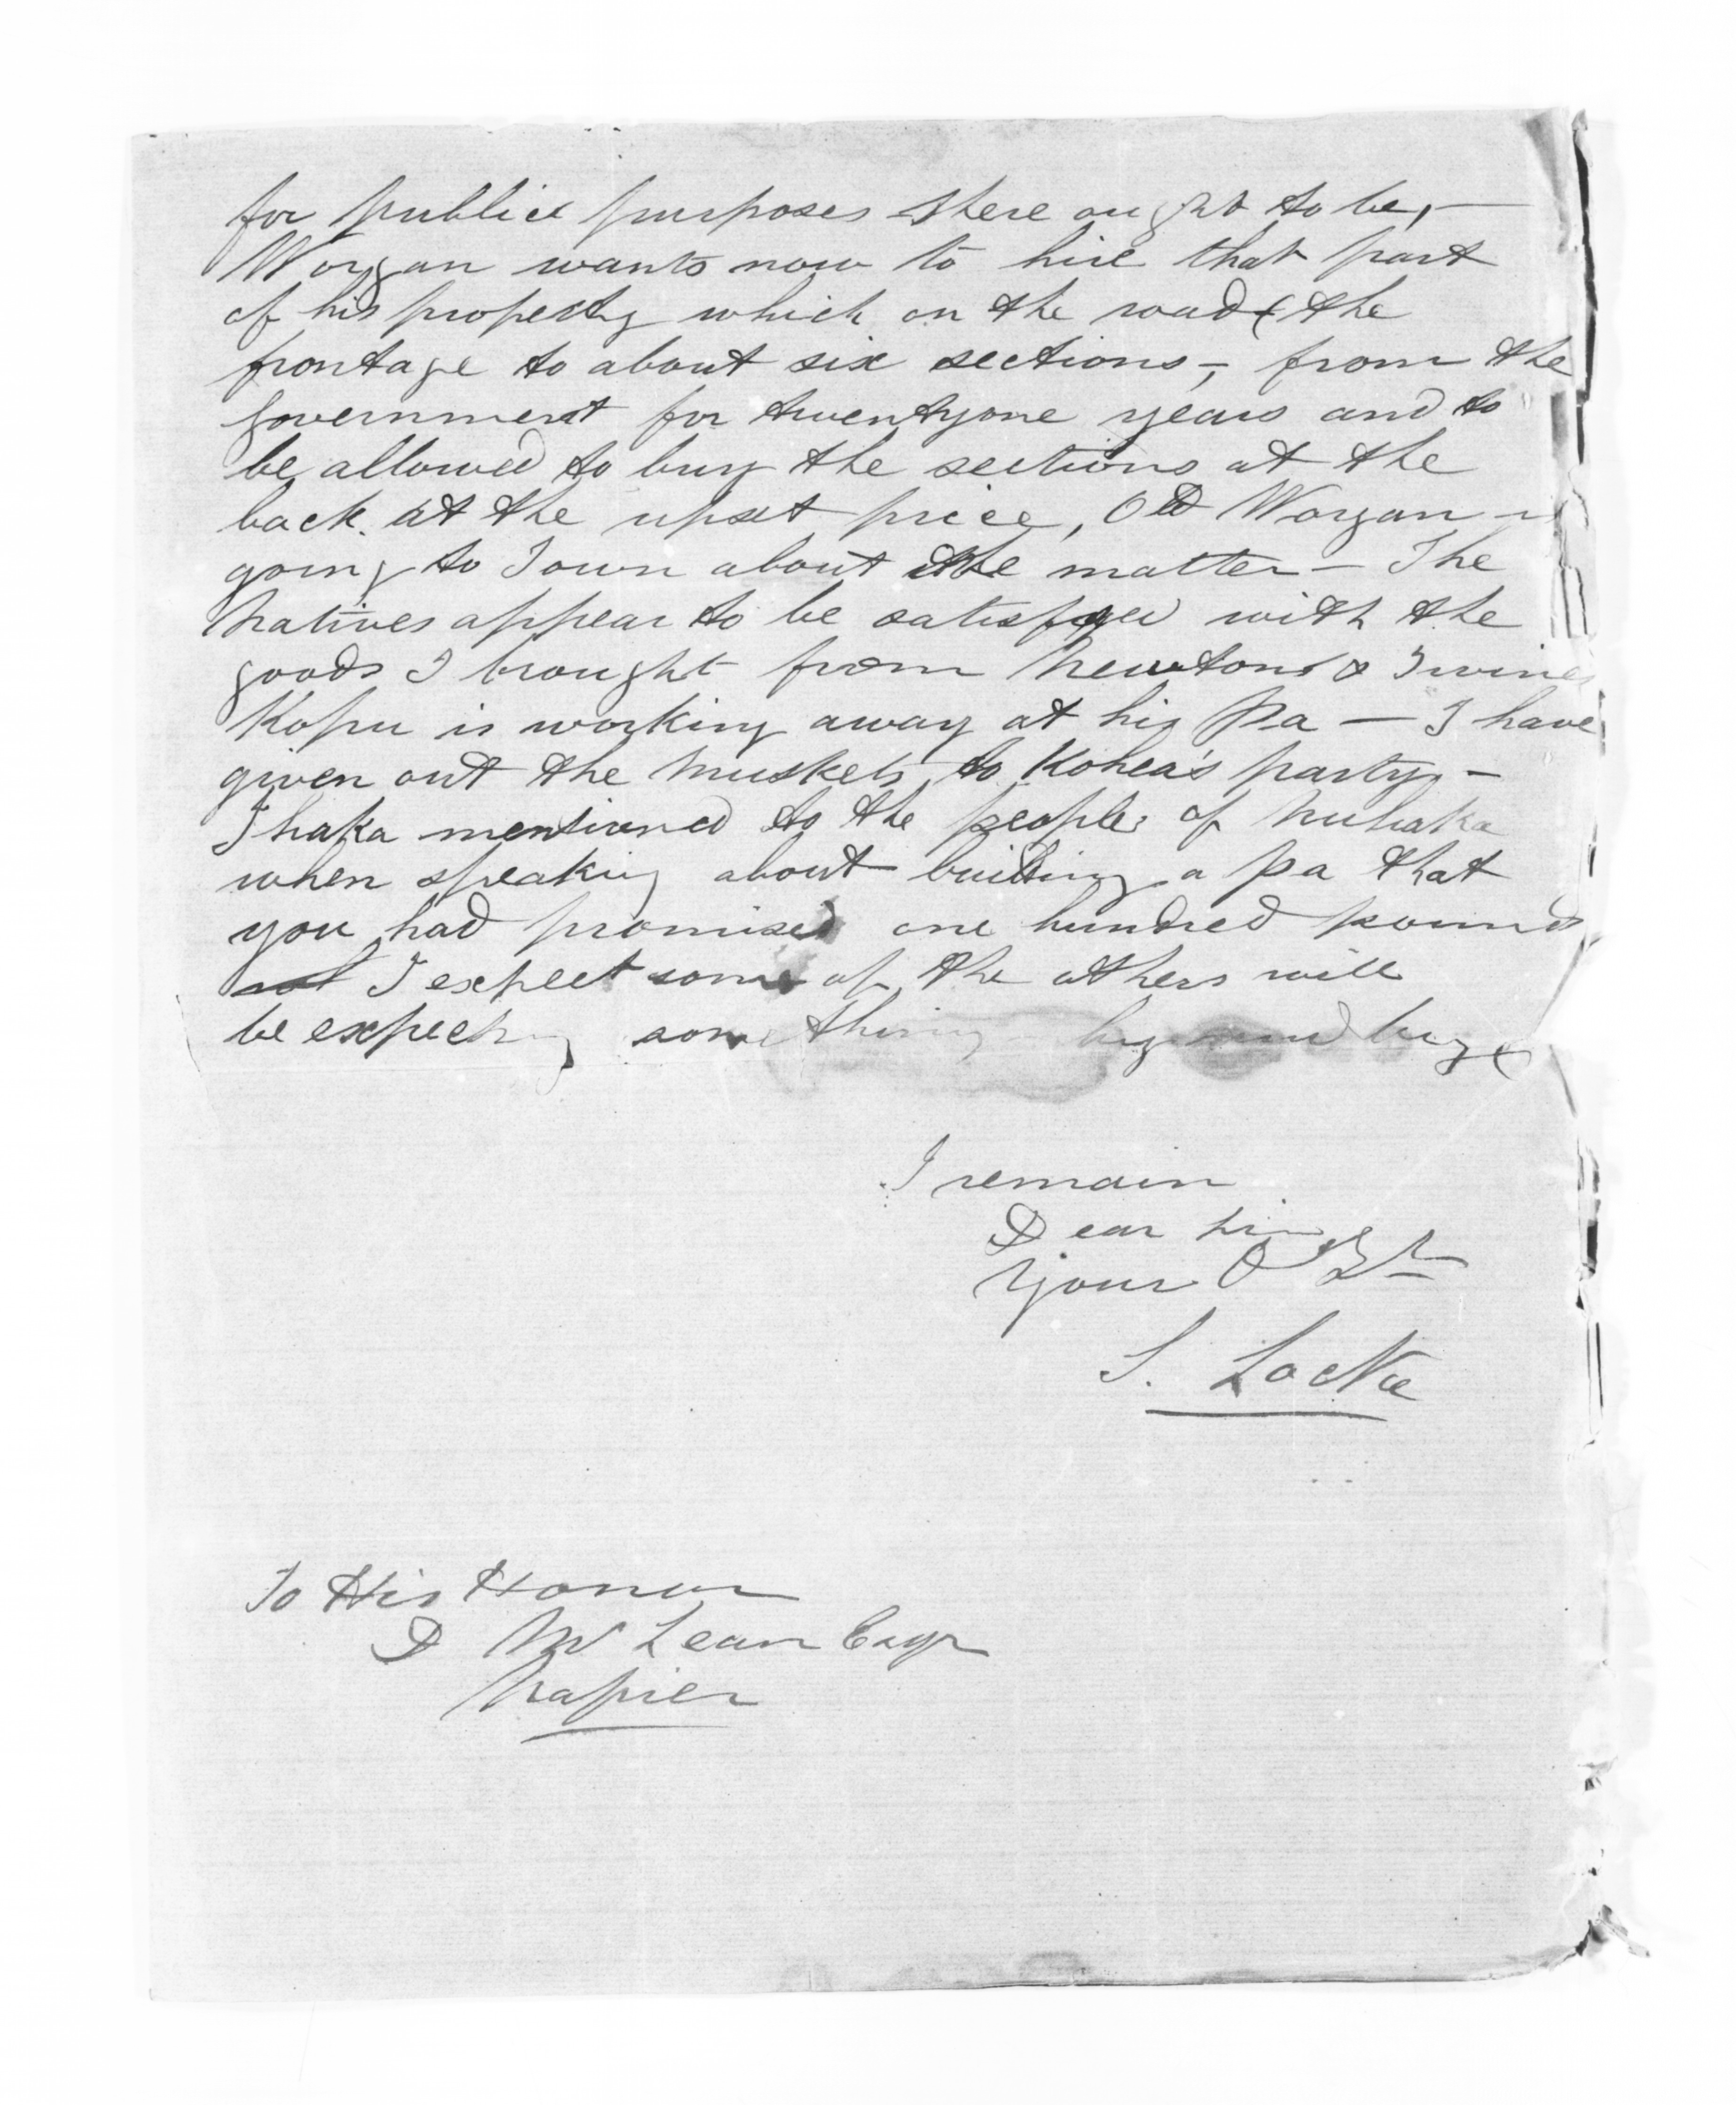 for public purposes there ought to be, —
Worgan wants now to hire that part
of his property which on the road & the
frontage to about six sections -, from the
Government for twentyone years and to
be allowed to buy the sections at the
back at the upset price, Old Worgan is
going to Town about the matter — The
Natives appear to be satisfyed with the
goods I brought from Newtons & Irvines
Kopu is working away at his Pa — I have
given out the muskets to Kohea's party —
Ihaka mentioned to the people of Nuhaka
when speaking about building a pa that
you had promised one hundred pounds
I expect some of the others will
be expecting something by and bye
I remain
Dear Sir
Your O St
S. Locke
To His Honor
D McLean Esqr
Napier